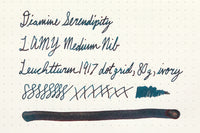 Diamine Serendipity
LAMY Medium Nib
Leuchtturm 1917 dot grid, 80g, ivory